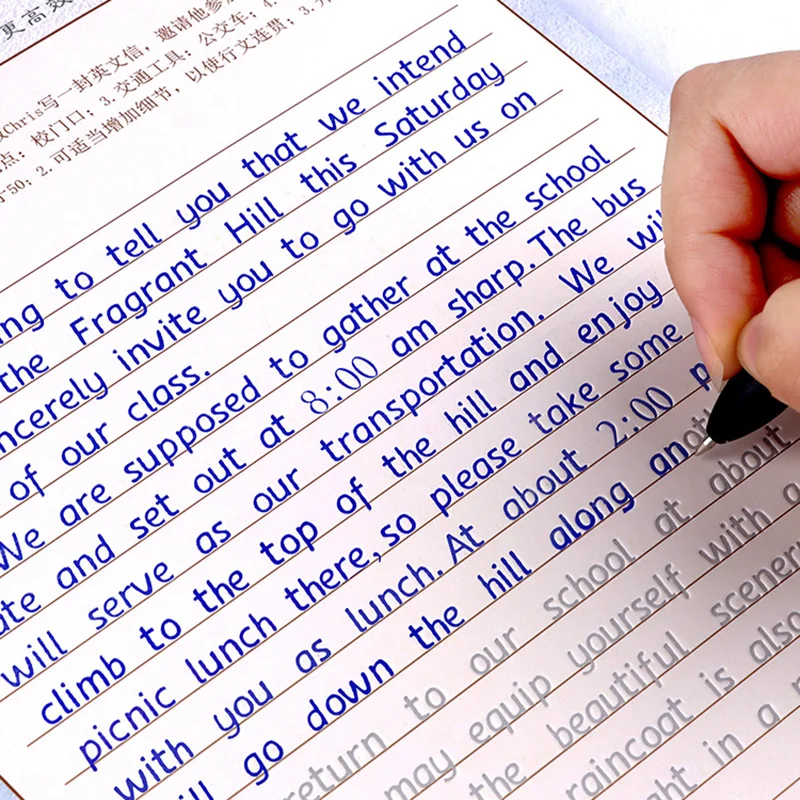 更高效
Chris写一封英文信，邀请他参
点：校门口；3.交通工具：公交车；4.
50；2.可适当增加细节，以使行文连贯；3.
ng to tell you that we intend
the Fragrant Hill this Saturday
ncerely invite you to go with us on
of our class.
We are supposed to gather at the school
ate and set out at 8:00 am sharp.The bus
will serve as our transportation. We wil
climb to the top of the hill and enjoy
picnic lunch there,so please take some
with you as lunch.At about 2:00 p
ill go down the hill along anoth
return to our school at about
may equip yourself with a
the beautiful scener
raincoat is also
ht in a